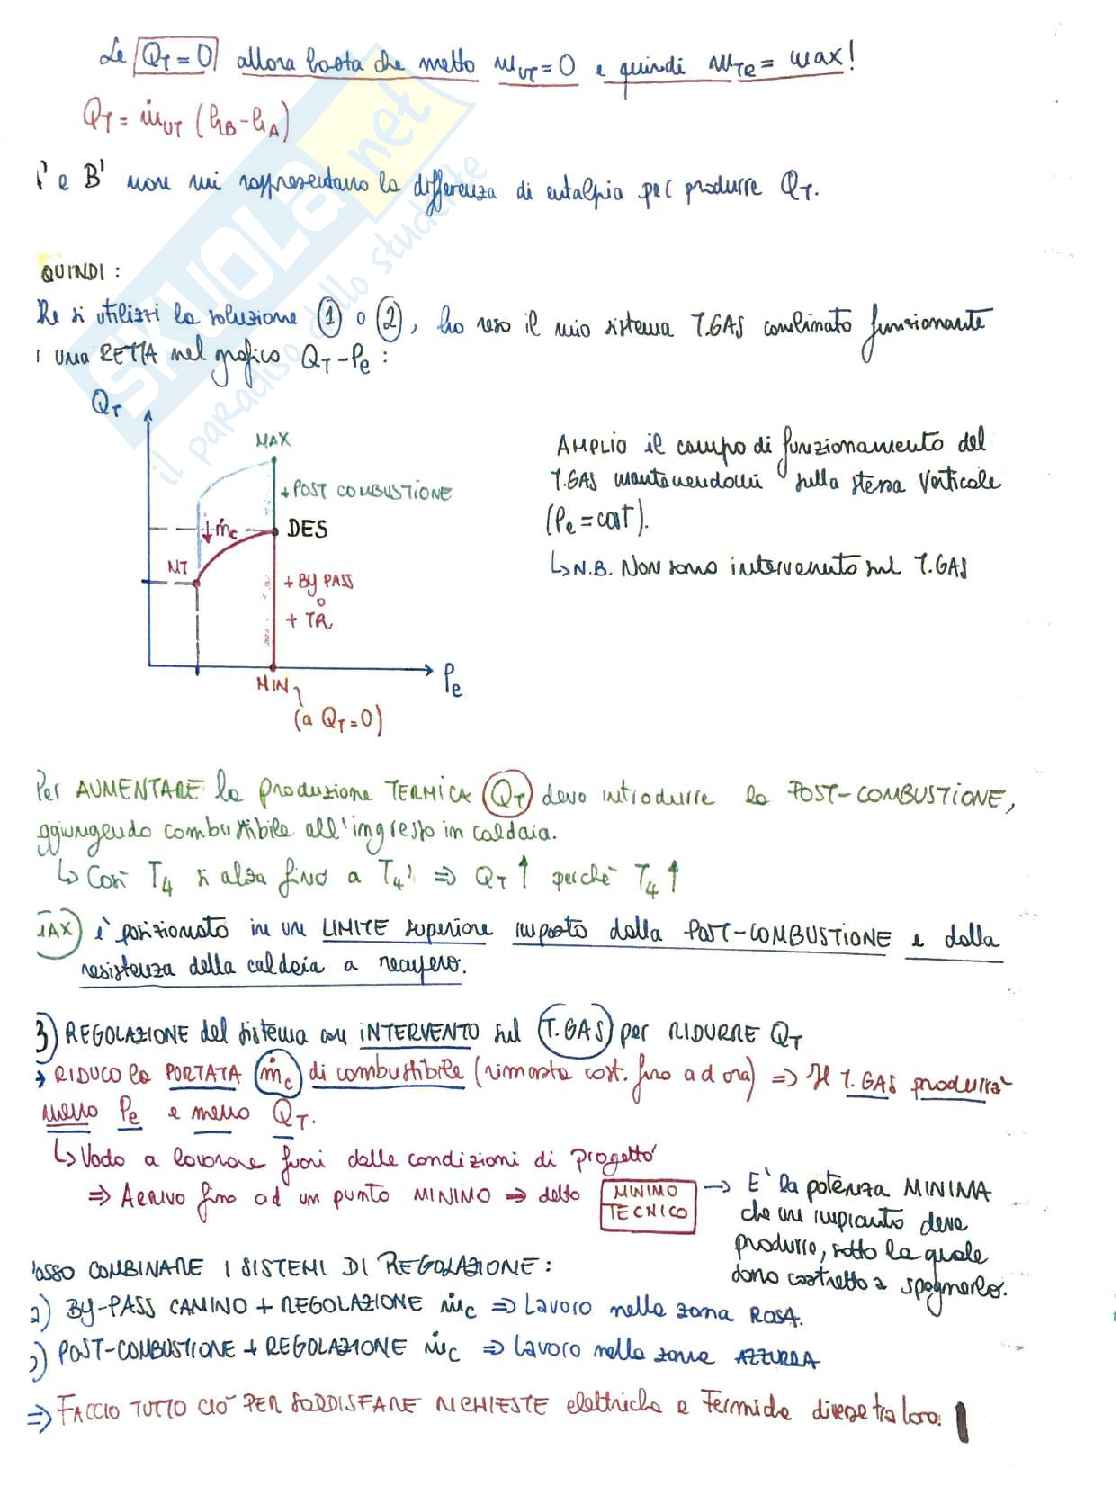 Se Q_T = 0 allora basta che metto ṁ_UT = 0 e quindi ṁ_TR = max!
Q_T = ṁ_UT (h_B - h_A)
e B' non mi rappresentano la differenza di entalpia per produrre Q_T.
QUINDI:
Se si utilizzi la soluzione ① o ②, ho reso il mio sistema T.GAS combinato funzionante
UNA RETTA nel grafico Q_T - P_e :
Q_T
MAX
+ POST COMBUSTIONE
↓ ṁ_c
DES
NT
+ BY PASS
o
+ TR
MIN
P_e
(a Q_T = 0)
AMPLIO il campo di funzionamento del
T.GAS mantenendomi sulla stessa verticale
(P_e = cost).
↳ N.B. NON sono intervenuto sul T.GAS
Per AUMENTARE la produzione TERMICA Q_T devo introdurre la POST-COMBUSTIONE,
aggiungendo combustibile all'ingresso in caldaia.
↳ Così T_4 si alza fino a T_4' ⇒ Q_T ↑ perchè T_4 ↑
MAX è posizionato in un LIMITE superiore imposto dalla POST-COMBUSTIONE e dalla
resistenza della caldaia a recupero.
3) REGOLAZIONE del sistema con INTERVENTO sul T.GAS per RIDURRE Q_T
→ RIDUCO la PORTATA ṁ_c di combustibile (rimasta cost. fino ad ora) ⇒ Il T.GAS produrrà
meno P_e e meno Q_T.
↳ Vado a lavorare fuori dalle condizioni di progetto
⇒ ARRIVO fino ad un punto MINIMO ⇒ detto MINIMO TECNICO → E' la potenza MINIMA
che un impianto deve
produrre, sotto la quale
sono costretto a spegnerlo.
POSSO COMBINARE I SISTEMI DI REGOLAZIONE:
a) BY-PASS CAMINO + REGOLAZIONE ṁ_c ⇒ Lavoro nella zona ROSA.
) POST-COMBUSTIONE + REGOLAZIONE ṁ_c ⇒ Lavoro nella zona AZZURRA
⇒ FACCIO TUTTO CIÒ PER SODDISFARE RICHIESTE elettriche e Termiche diverse tra loro.
SKUOLA.net
il paradiso dello studente